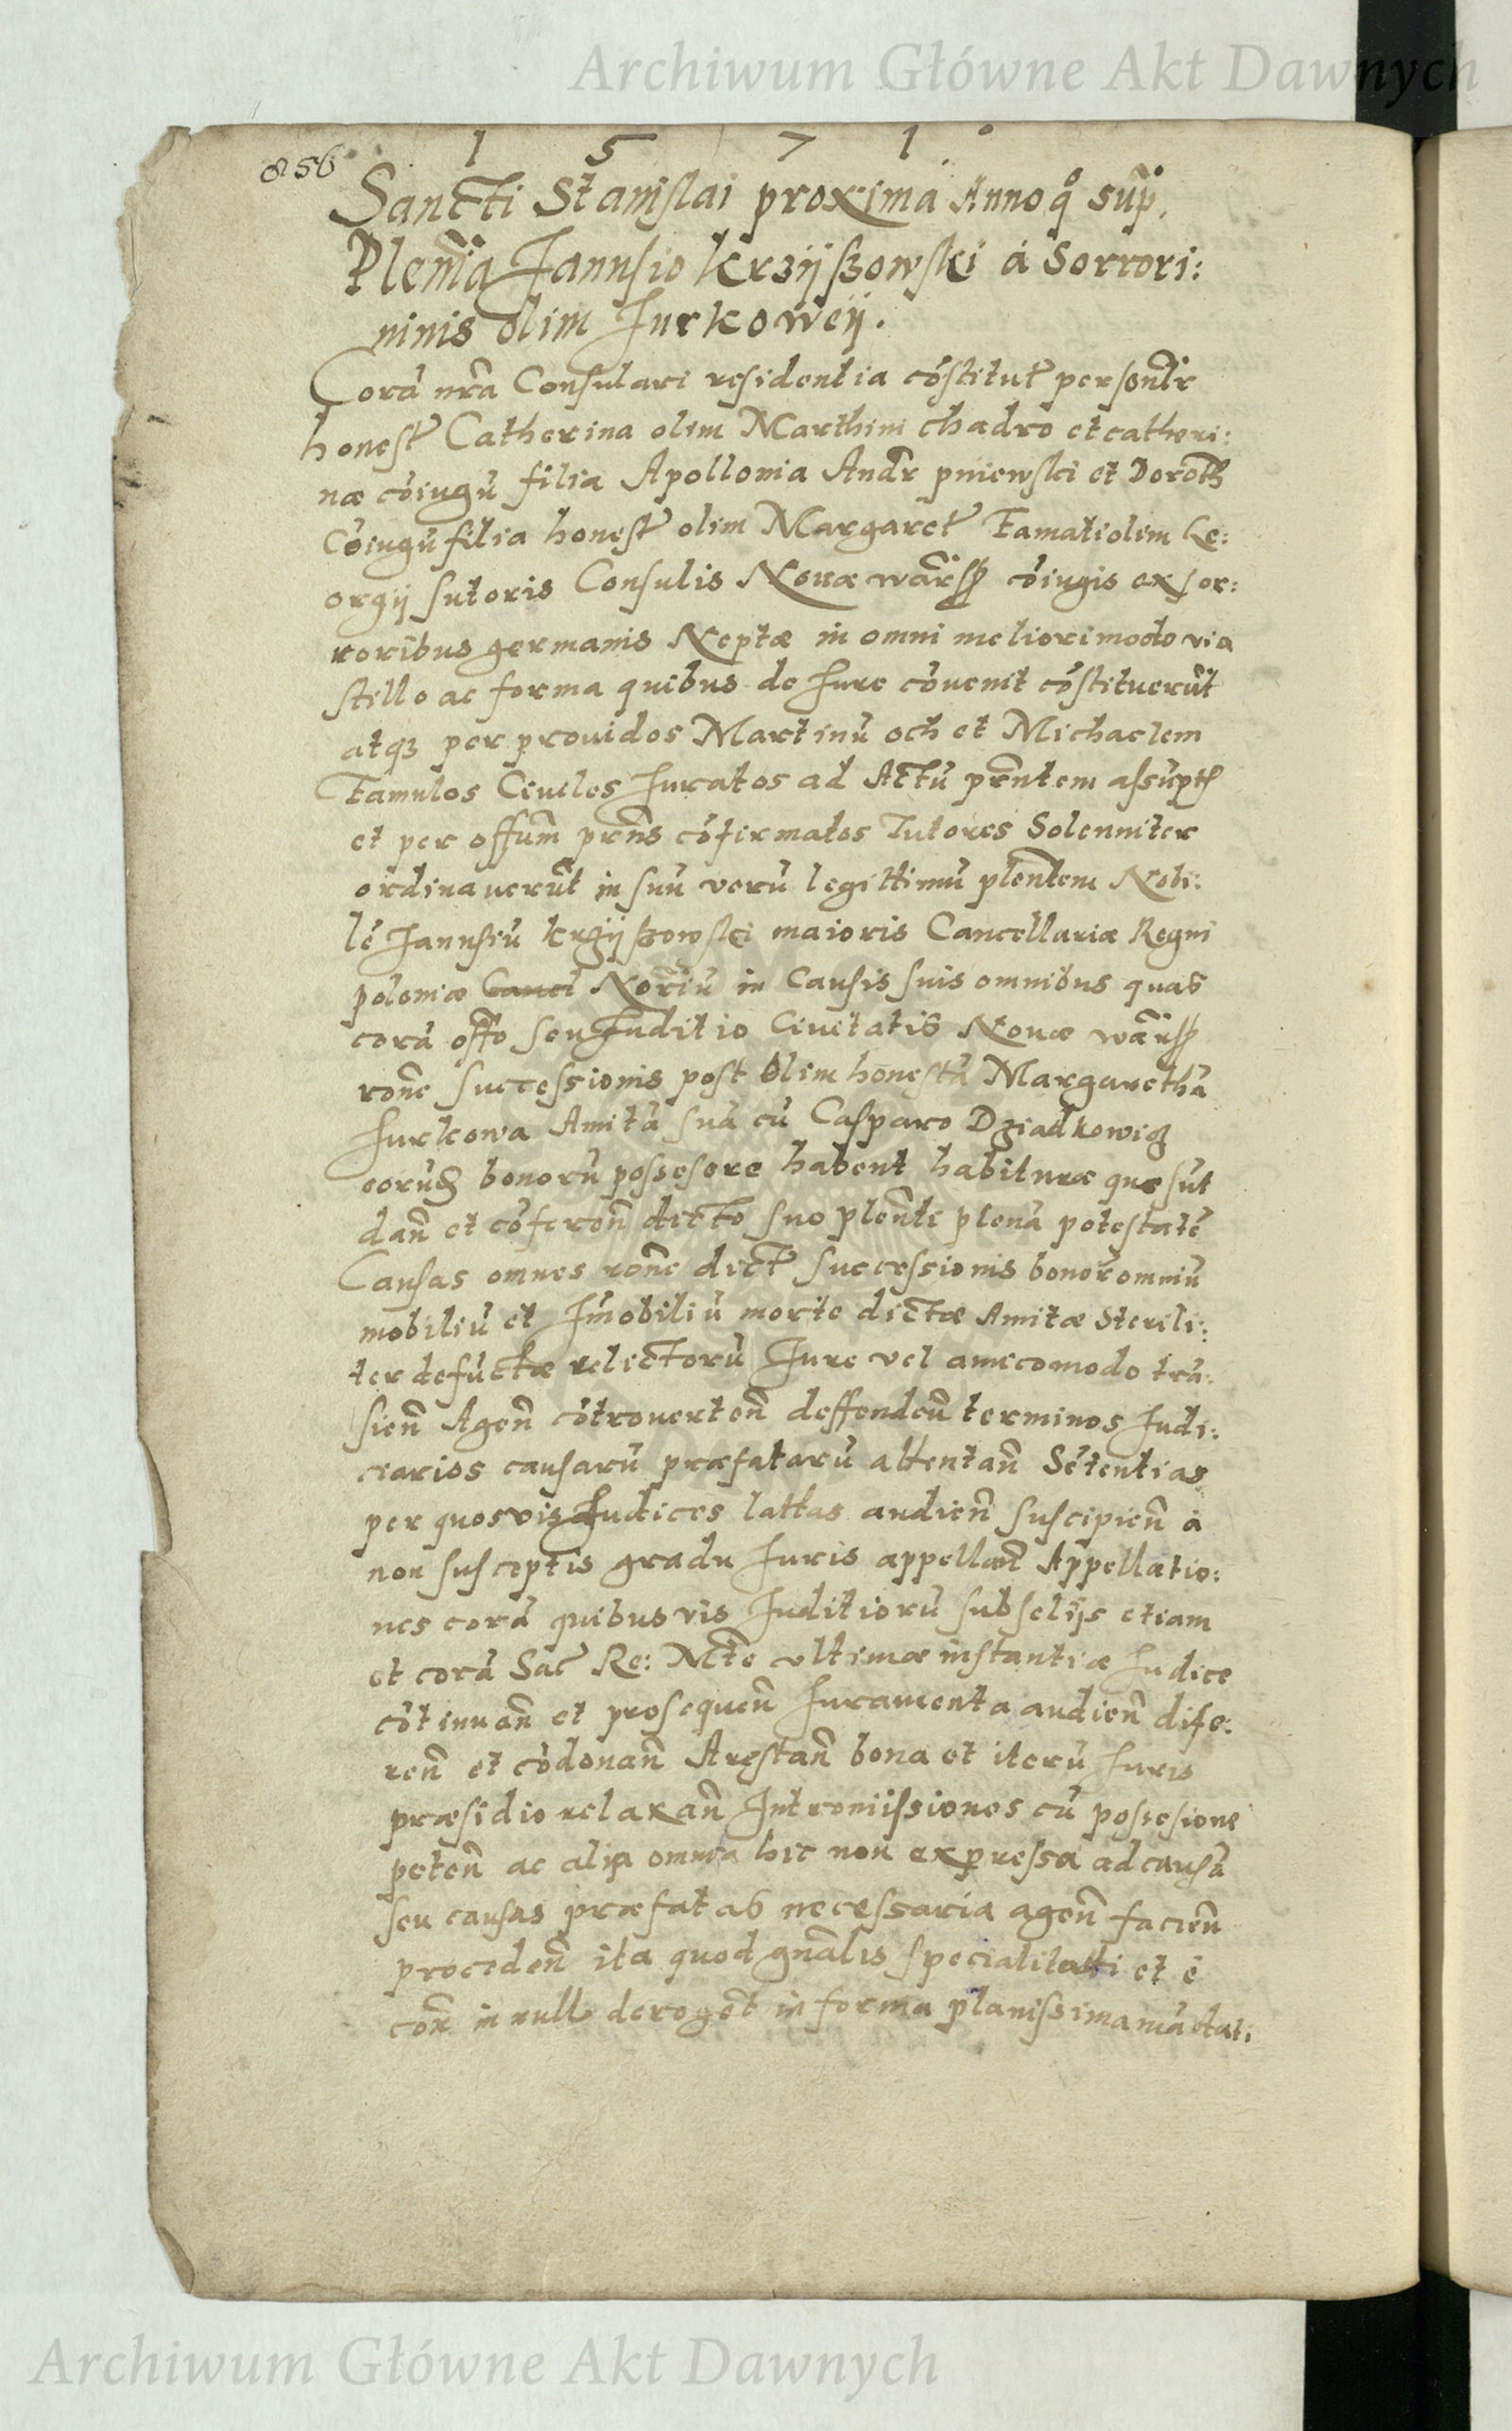 Archiwum Główne Akt Dawnych
1 5 7 1°
856
Sancti Stanislai proxima Anno q° sup̃.
Pleñia Janusio krziÿszowski á Sorrori:
ninis olim Jurkoweÿ.
Corã nr̃a Consulari residentia cõstitut̃ personlr̃
honest̃ Catherina olim Marthini chadro et catheri:
næ cõiugũ filia Apollonia Andr̃ pniewski et Doroth
Cõiugũ filia honest̃ olim Margaret̃ Famati olim Ge:
orgÿ sutoris Consulis Nouæ warss̃ cõiugis ex sor:
roribus germanis Neptæ in omni meliori modo via
stillo ac forma quibus de Jure cõuenit cõstituerũt
atqȝ per prouidos Martinũ och et Michaelem
Famulos Ciuiles Juratos ad Actũ pr̃ntem assũpt̃
et per offum̃ prñs cõfirmatos Tutores Solenniter
ordinauerũt in suũ verũ legittimũ plentem̃ Nobi:
lẽ Janussiũ krzÿszowski maioris Cancellariæ Regni
poloniæ Canct Nor̃iũ in Causis suis omnibus quas
corã offo seu Juditio Ciuitatis Nouæ warss̃
rone̅ successionis post olim honestã Margarethã
Jurkowa Amitã suã cũ Casparo Dziadkowicz
eorũdẽ bonorũ possesore habent habituræ quæ sũt
dañ et cõfereñ dicto suo plenti̅ plenã potestatẽ
Causas omnes rone̅ dict̃ successionis bonor̃ omniũ
mobiliũ et Im̃obiliũ morte dictæ Amitæ Sterili:
ter defũctæ relictorũ Jure vel amico modo trã:
sieñ Ageñ cõtrouerteñ deffendeñ terminos Judi:
ciarios causarũ præfatarũ attentañ Sẽtentias
per quosvis Judices lattas audieñ suscipieñ á
non susceptis gradu Juris appellañ Appellatio:
nes corã quibusvis Juditiorũ subselijs etiam
et corã Sac̃ Re: Mte̅ vltimæ instantiæ Judice
cõtinuañ et prosequeñ Juramenta audieñ dife:
reñ et cõdonañ Arestañ bona et iterũ Juris
præsidio relaxañ Intromissiones cũ possesione
peteñ ac alia omnia hic non expressa ad causã
seu causas præfatas necessaria ageñ facieñ
procedeñ ita quod gñalis specialitati et ẽ
cor̃ in null derogẽt in forma planissima nũctati.
Archiwum Główne Akt Dawnych